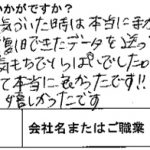 いかがですか？
気づいた時は本当にまっ
復旧できたデータを送っ
気もちでいっぱいでした。
て本当に良かったです!!
嬉しかったです
会社名またはご職業